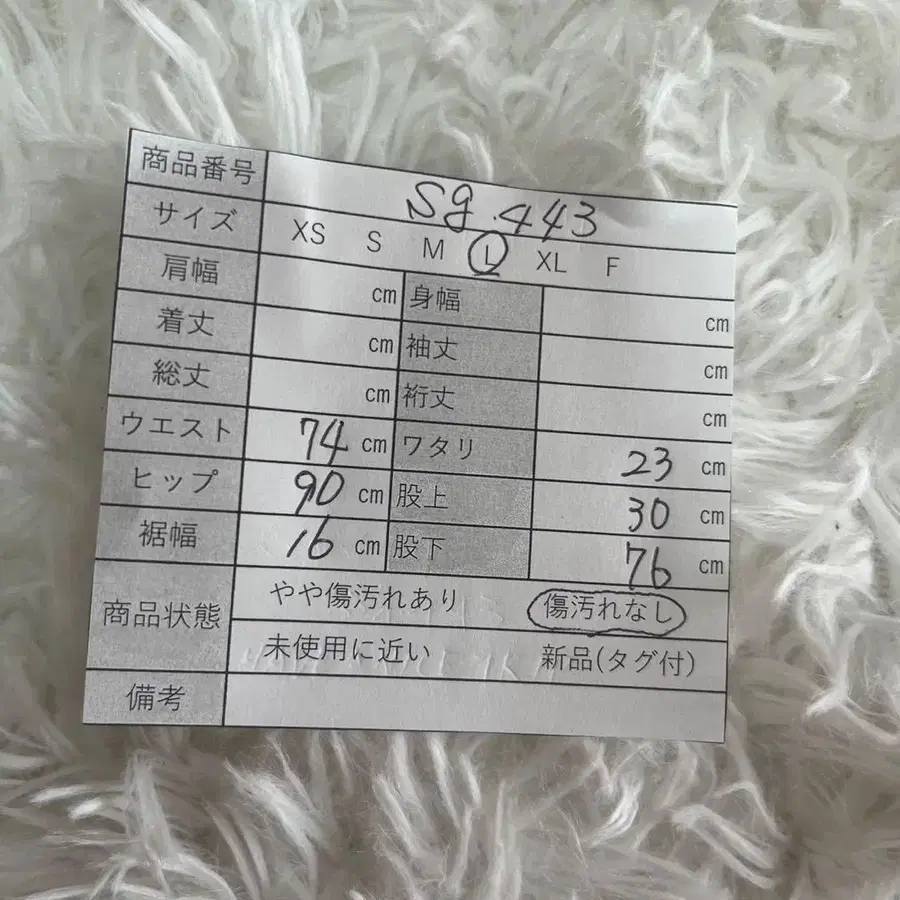 商品番号 Sg.443
サイズ XS S M L XL F
肩幅 cm 身幅 cm
着丈 cm 袖丈 cm
総丈 cm 裄丈 cm
ウエスト 74 cm ワタリ 23 cm
ヒップ 90 cm 股上 30 cm
裾幅 16 cm 股下 76 cm
商品状態 やや傷汚れあり 傷汚れなし
未使用に近い 新品(タグ付)
備考